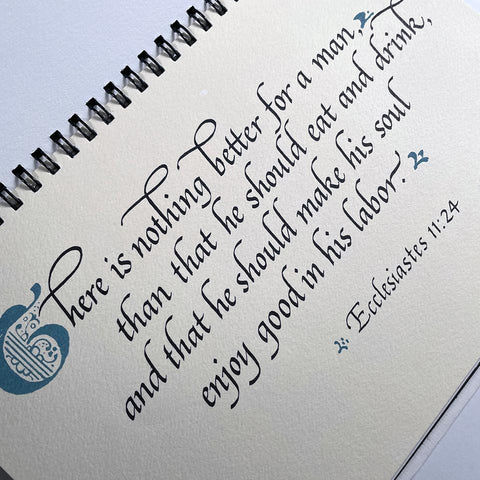 There is nothing better for a man,
than that he should eat and drink,
and that he should make his soul
enjoy good in his labor.
Ecclesiastes 11:24